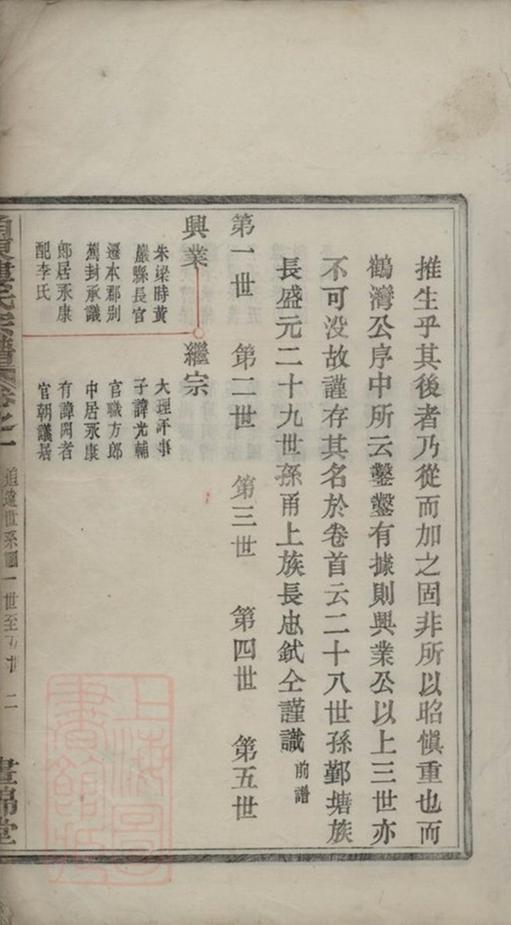 推生乎其後者乃從而加之固非所以昭慎重也而
鶴灣公序中所云鑿鑿有據則興業公以上三世亦
不可没故謹存其名於卷首云二十八世孫鄞塘族
長盛元二十九世孫甬上族長忠鉽仝謹識 前譜
第一世 第二世 第三世 第四世 第五世
興業 繼宗
朱梁時黄
巖縣長官
遷本郡別
駕封承議
郎居永康
配李氏
大理評事
子諱光輔
官職方郎
中居永康
有諱閎者
官朝議居
婁氏宗譜 卷之一 追遠世系圖 一世至五世 二 晝錦堂
上海圖書館藏